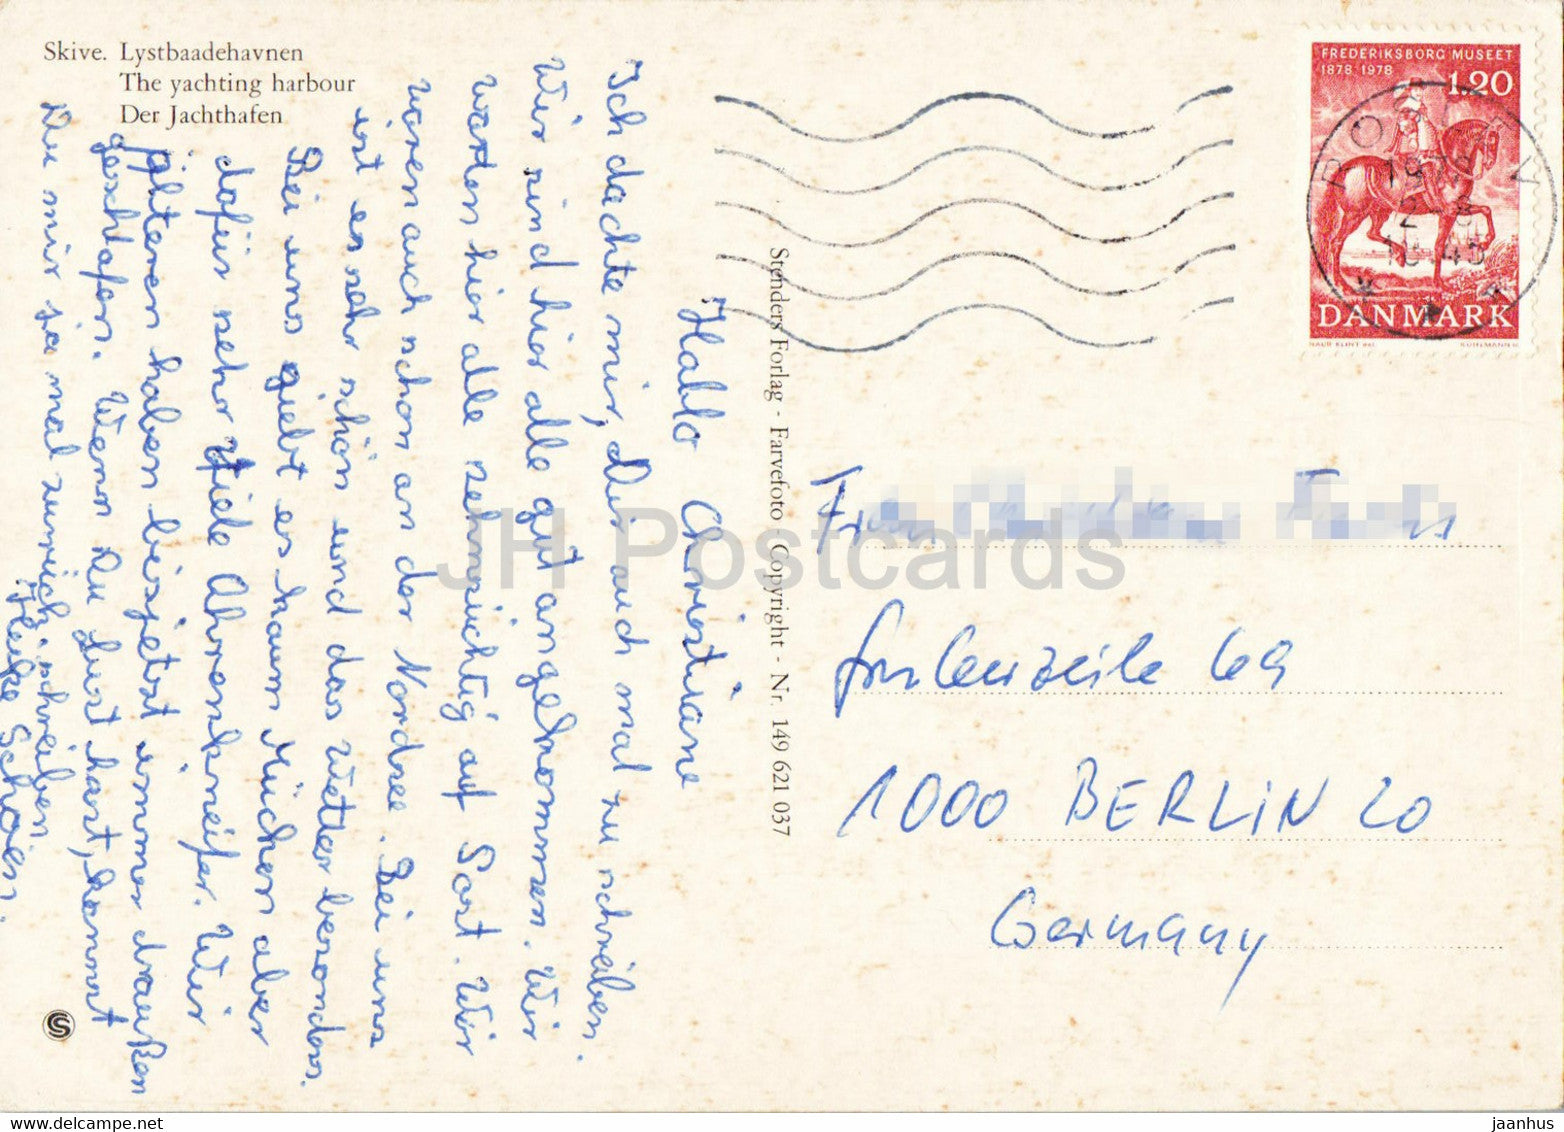 Skive. Lystbaadehavnen
The yachting harbour
Der Jachthafen
Hallo Christiane
Ich dachte mir, Dir auch mal zu schreiben.
Wir sind hier alle gut angekommen. Wir
warten hier alle sehnsüchtig auf Post. Wir
waren auch schon an der Nordsee. Bei uns
ist es sehr schön und das Wetter besonders.
Bei uns giebt es kaum Mücken aber
dafür sehr viele Ohrenkneifer. Wir
älteren haben bisjetzt immer draußen
geschlafen. Wenn Du Lust hast, kannst
Du mir ja mal zurückschreiben.
Heike
Stenders Forlag - Farvefoto Copyright - Nr. 149 621 037
FREDERIKSBORG MUSEET
1878 1978
1.20
DANMARK
69
1000 BERLIN 20
Germany
JH Postcards
jaanhus